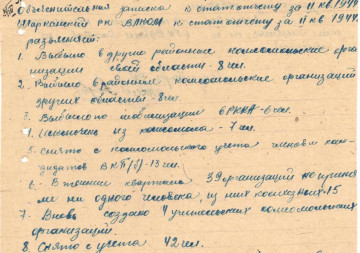 Объяснительная записка к статотчету за II кв. 1944
Шарканский РК ВЛКСМ к статотчету за II кв. 1944
разъясняет:
1. Выбыло в другие районные комсомольские орга-
низации своей области - 8 чел.
2. Выбыло в районные комсомольские организации
других областей - 8 чел.
3. Выбыло по мобилизации в РККА - 6 чел.
4. Исключено из комсомола - 7 чел.
5. Снято с комсомольского учета членов и кан-
дидатов ВКП(б) - 13 чел.
6. В течении квартала 39 организаций не приня
ли ни одного человека, из них колхозных - 15
7. Вновь создано 4 учительских комсомольских
организаций.
8. Снято с учета 42 чел.